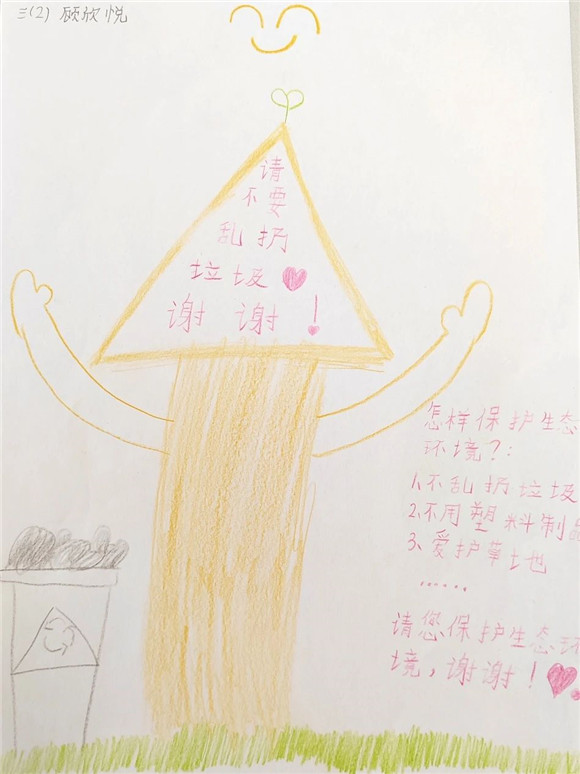 三(2) 顾欣悦
请
不要
乱扔
垃圾
谢谢!
怎样保护生态
环境?:
1.不乱扔垃圾
2.不用塑料制品
3、爱护草土也
......
请您保护生态环
境,谢谢!